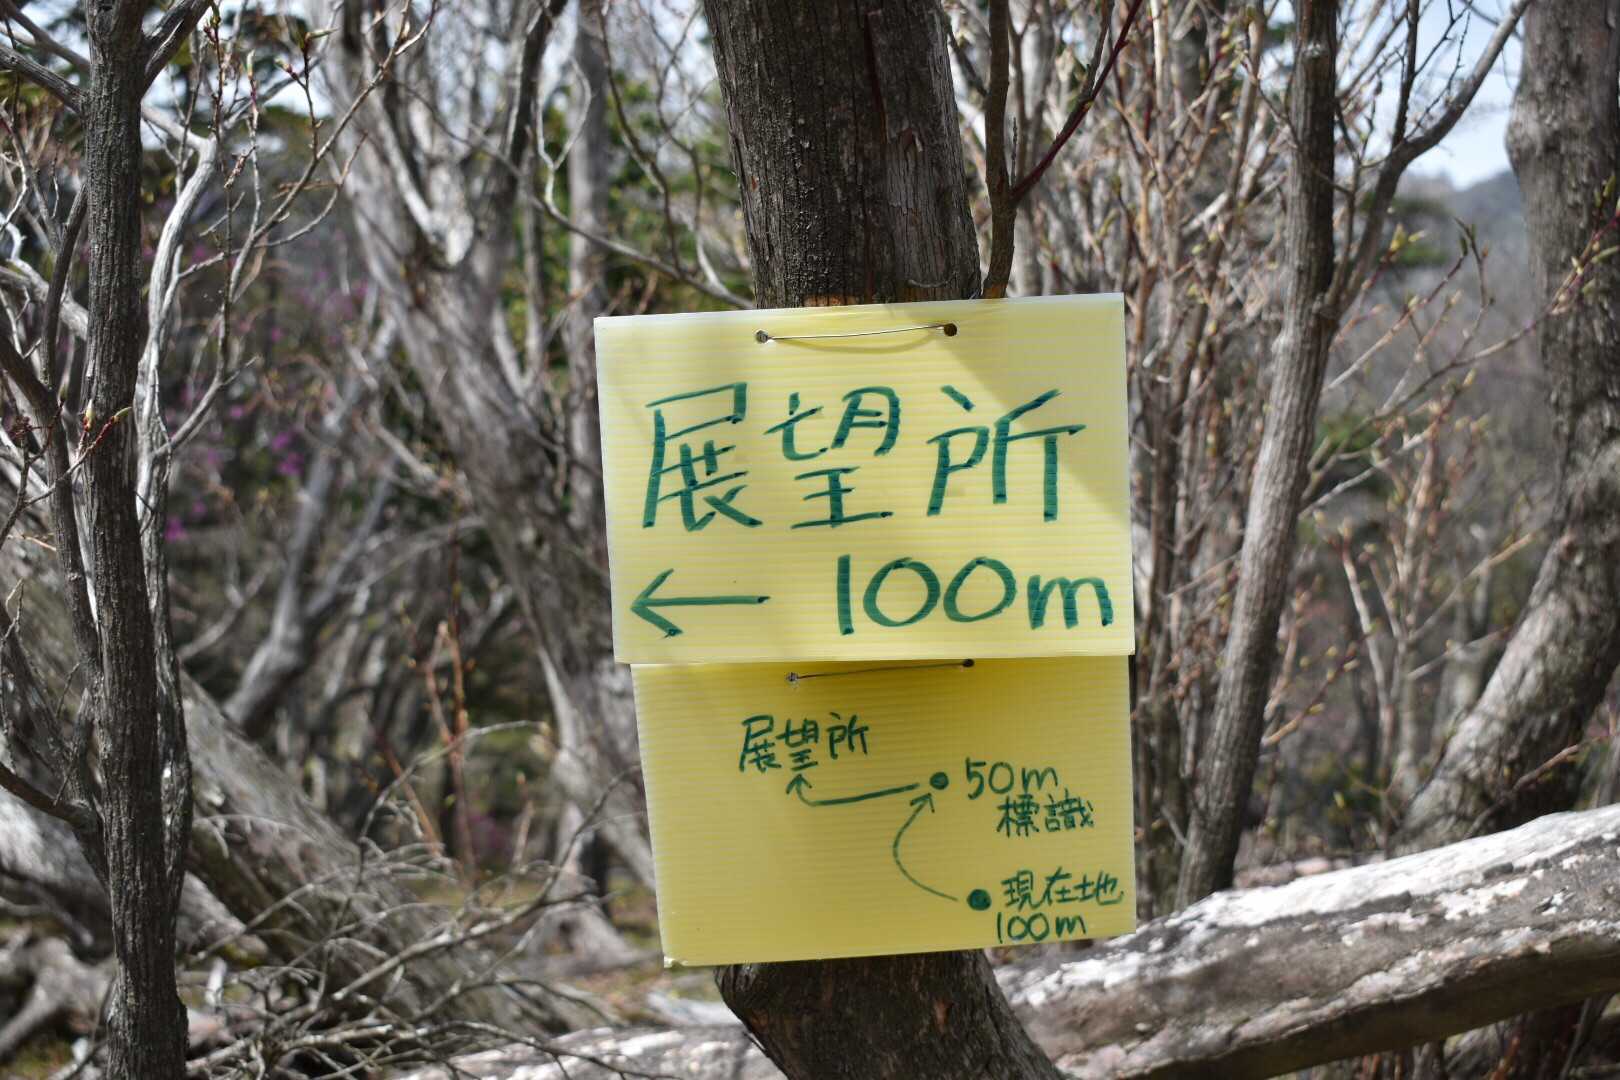 展望所
← 100m
展望所
50m
標識
現在地
100m